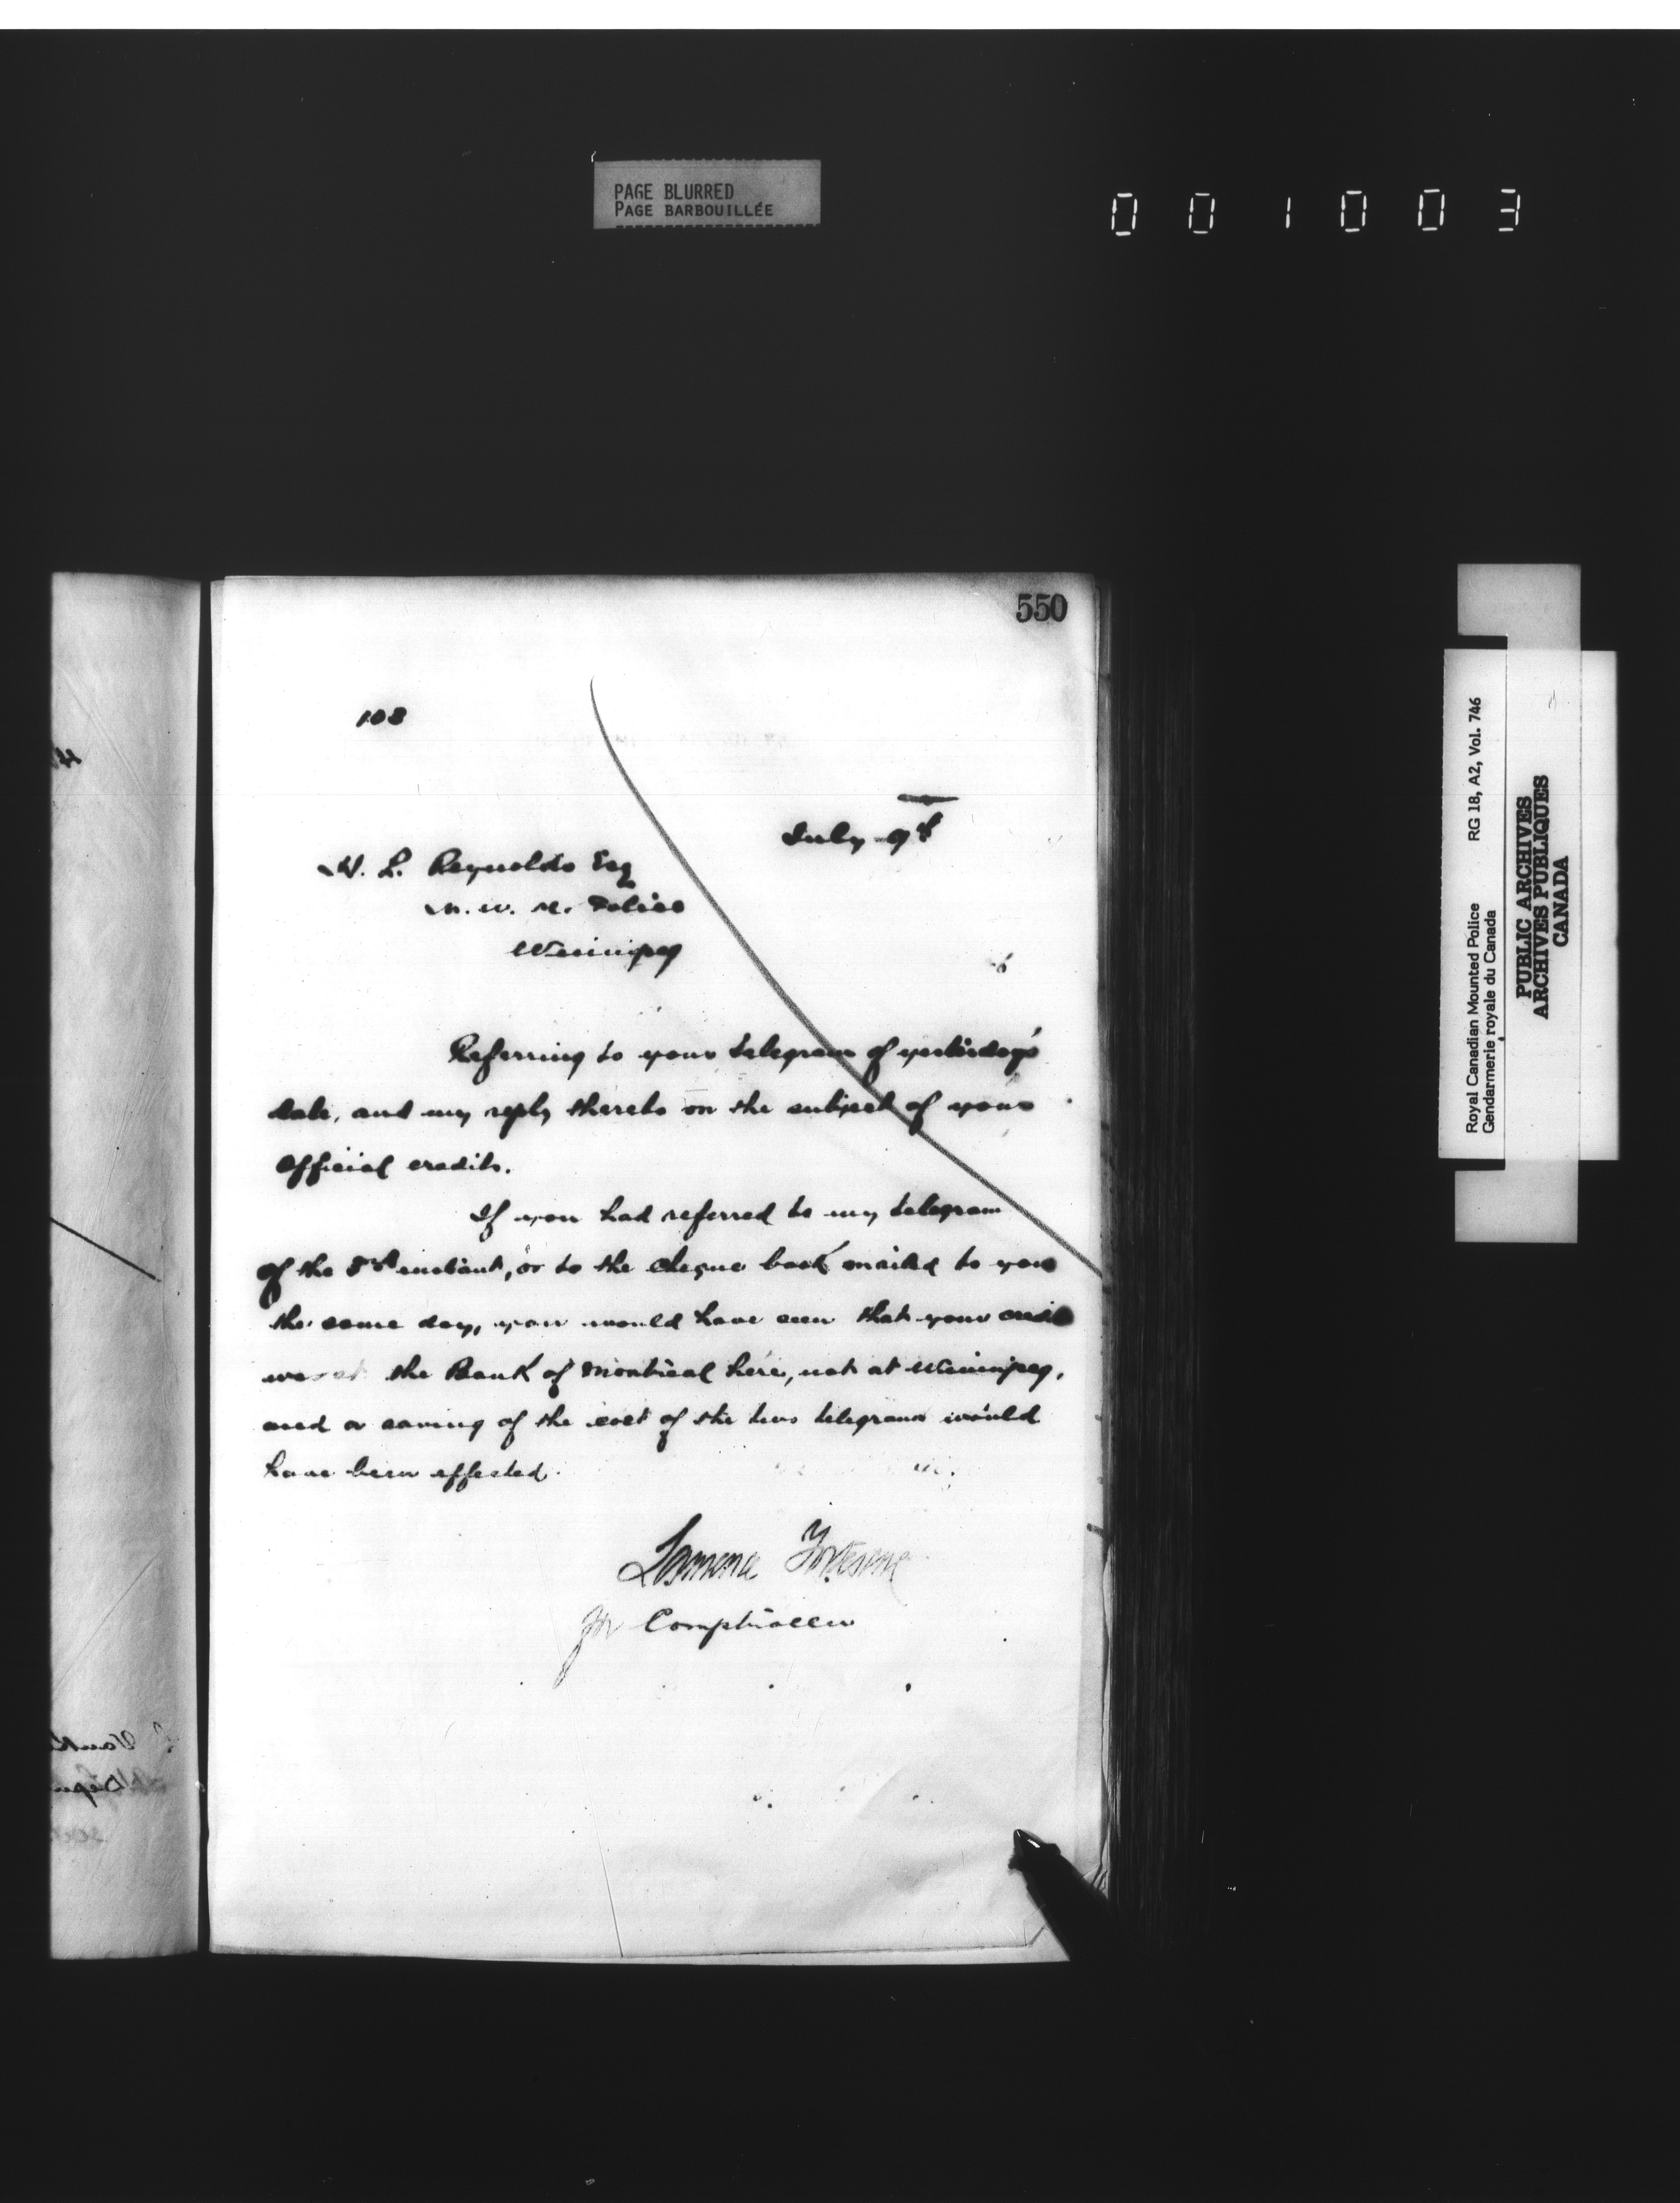 PAGE BLURRED
PAGE BARBOUILLÉE
001003
550
108
July 9th
H. L. Reynolds Esq
N. W. M. Police
Winnipeg
Referring to your telegram of yesterday's
date, and my reply thereto on the subject of your
Official credits.
If you had referred to my telegram
of the 3rd instant, or to the cheque book mailed to you
the same day, you would have seen that your
was at the Bank of Montreal here, not at Winnipeg,
and a saving of the cost of the two telegrams would
have been effected.
Lawrence Fortescue
for Comptroller
Royal Canadian Mounted Police RG 18, A2, Vol. 746
Gendarmerie royale du Canada
PUBLIC ARCHIVES
ARCHIVES PUBLIQUES
CANADA